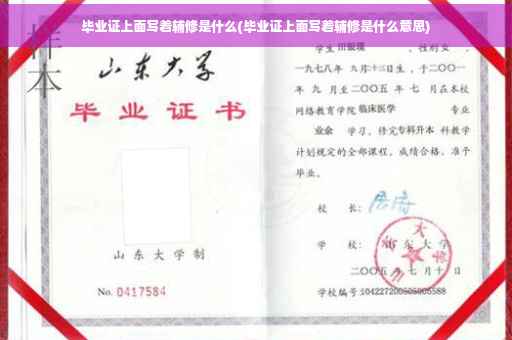 毕业证上面写着辅修是什么(毕业证上面写着辅修是什么意思)
样本
山东大学
毕业证书
山东大学制
No. 0417584
学生 ，性别女，
一九七八年 九月十三日生，于二〇〇一
年 九 月至二〇〇五 年 七 月在本校
网络教育学院 临床医学 专业
业余 学习，修完专科升本 科教学
计划规定的全部课程，成绩合格，准予
毕业。
校 长：
学 校： 山东大学
二〇〇五 年 七 月 十 日
学校编号: